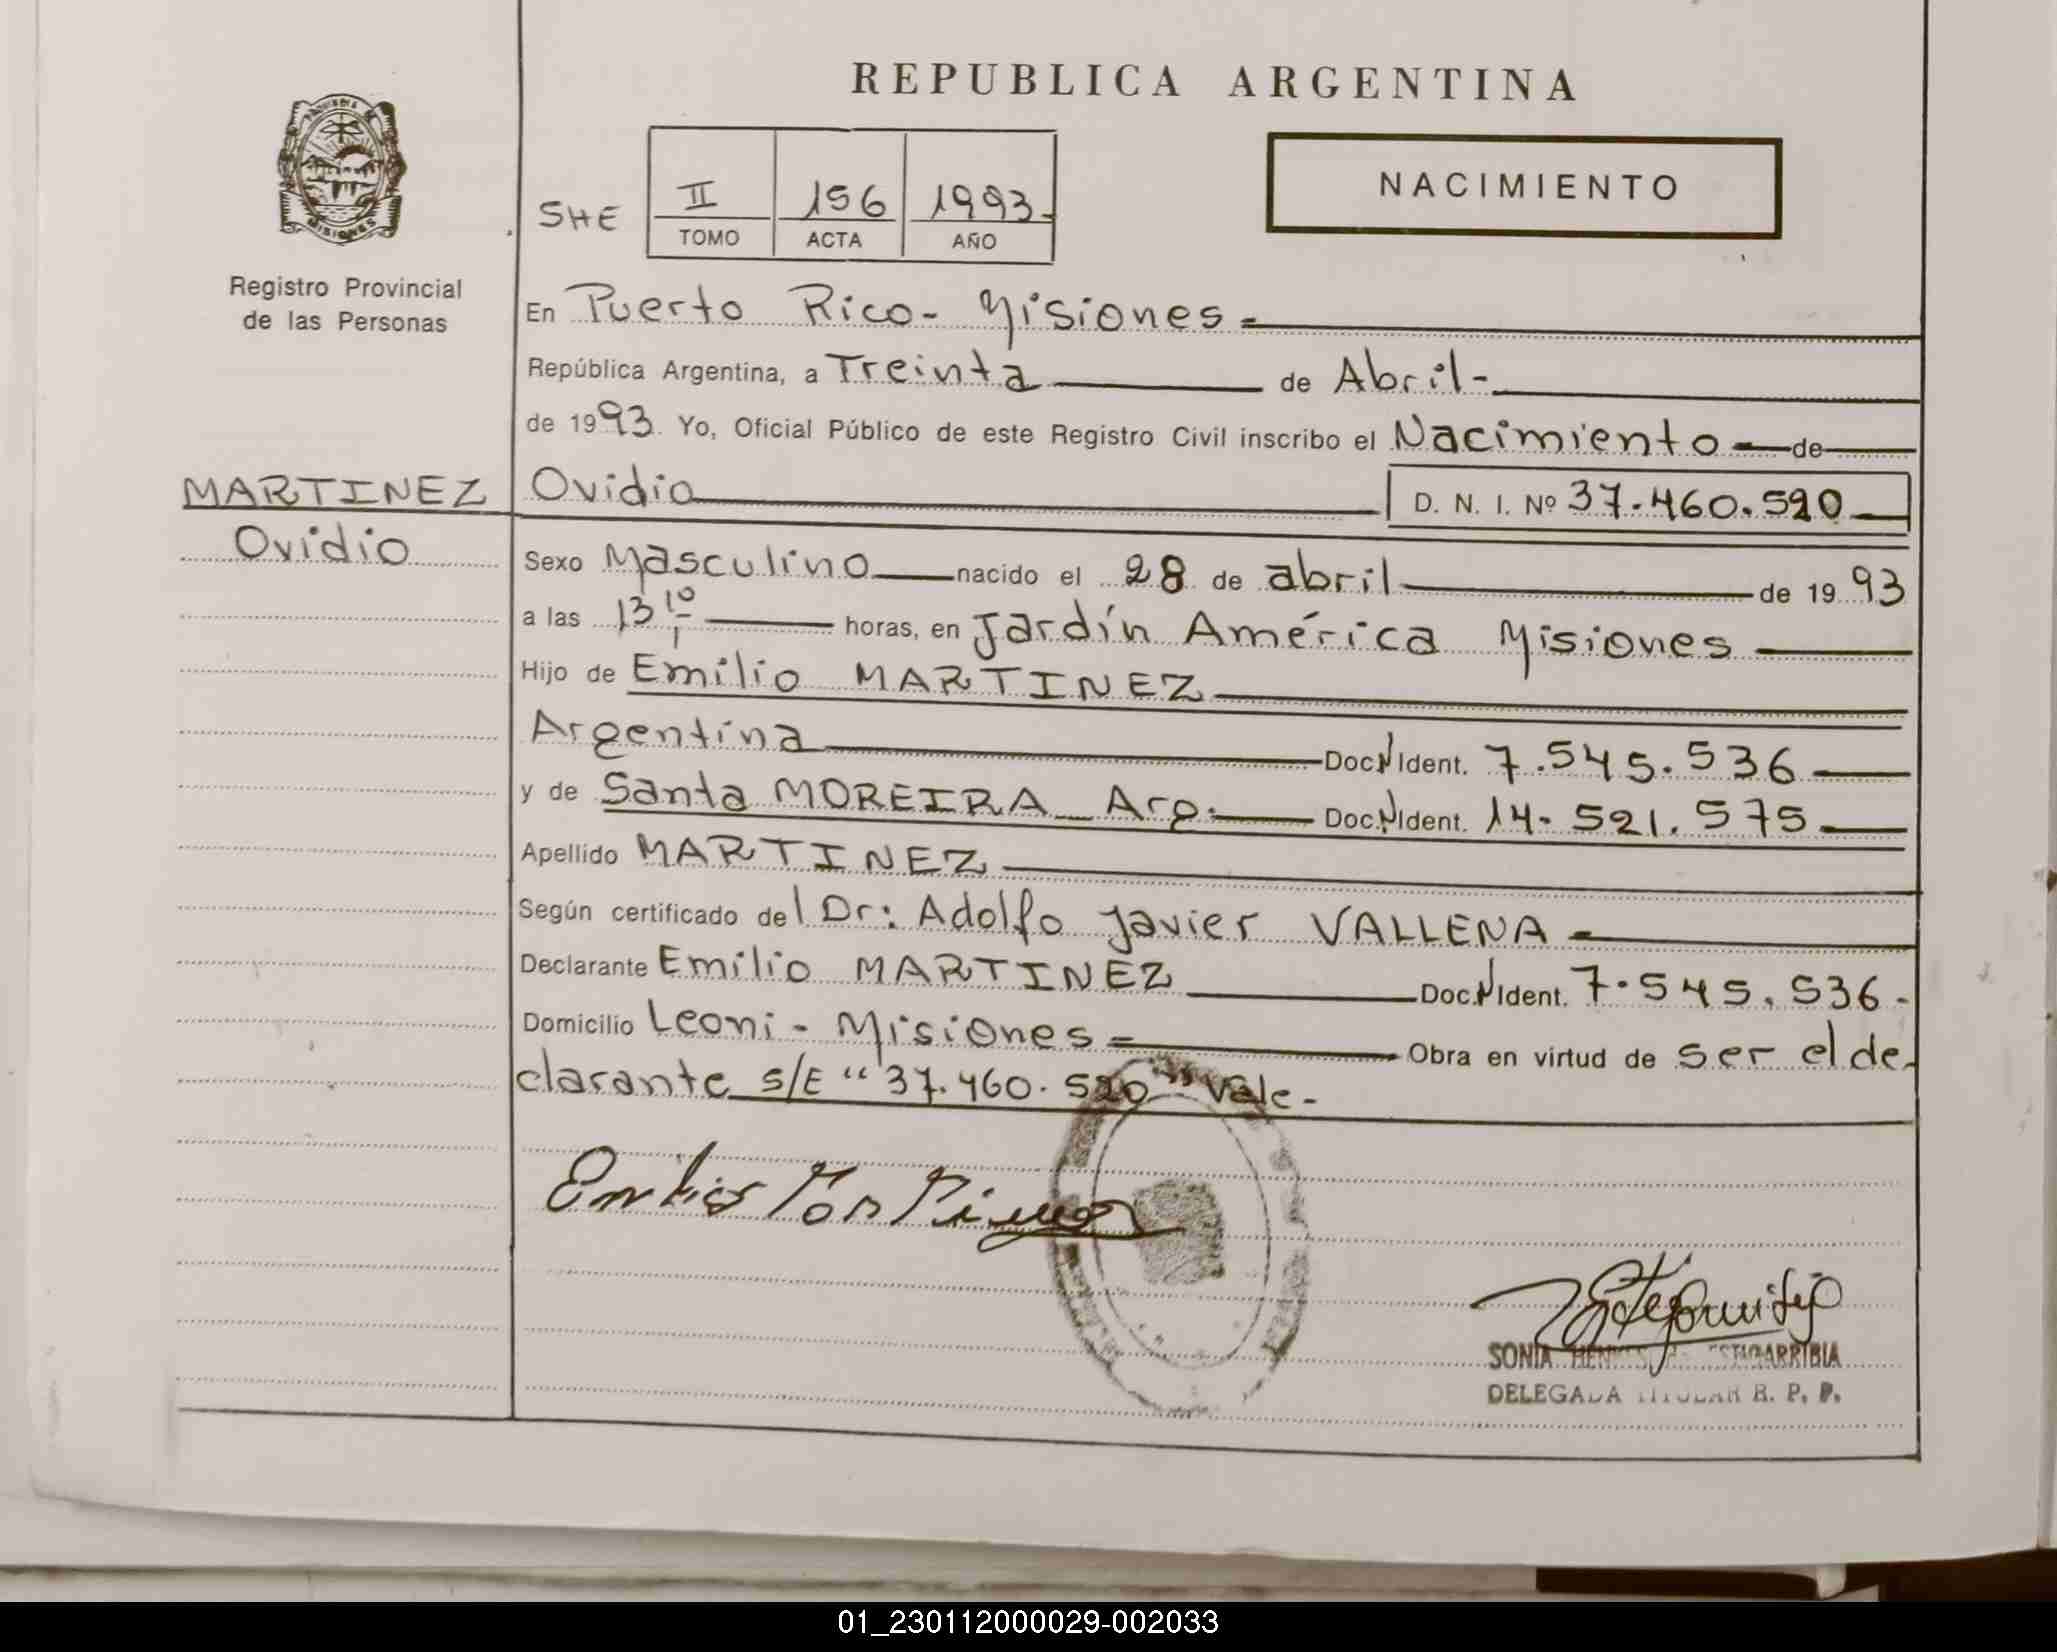 REPUBLICA ARGENTINA
PROVINCIA DE
MISIONES
Registro Provincial
de las Personas
SHE
II 156 1993-
TOMO ACTA AÑO
NACIMIENTO
En Puerto Rico- Misiones-
República Argentina, a Treinta de Abril-
de 1993. Yo, Oficial Público de este Registro Civil inscribo el Nacimiento - de
MARTINEZ
Ovidio
Ovidio D. N. I. Nº 37.460.520
Sexo Masculino nacido el 28 de abril de 1993
a las 13 10 horas, en Jardín América Misiones
Hijo de Emilio MARTINEZ
Argentina Doc.N Ident. 7.545.536
y de Santa MOREIRA Arg. Doc.N Ident. 14.521.575
Apellido MARTINEZ
Según certificado del Dr: Adolfo Javier VALLENA -
Declarante Emilio MARTINEZ Doc.N Ident. 7.545.536-
Domicilio Leoni - Misiones - Obra en virtud de ser el de-
clarante s/E "37.460.520" Vale-
Emilio Martinez
SONIA ESTIGARRIBIA
DELEGADA TITULAR R. P. P.
01_230112000029-002033